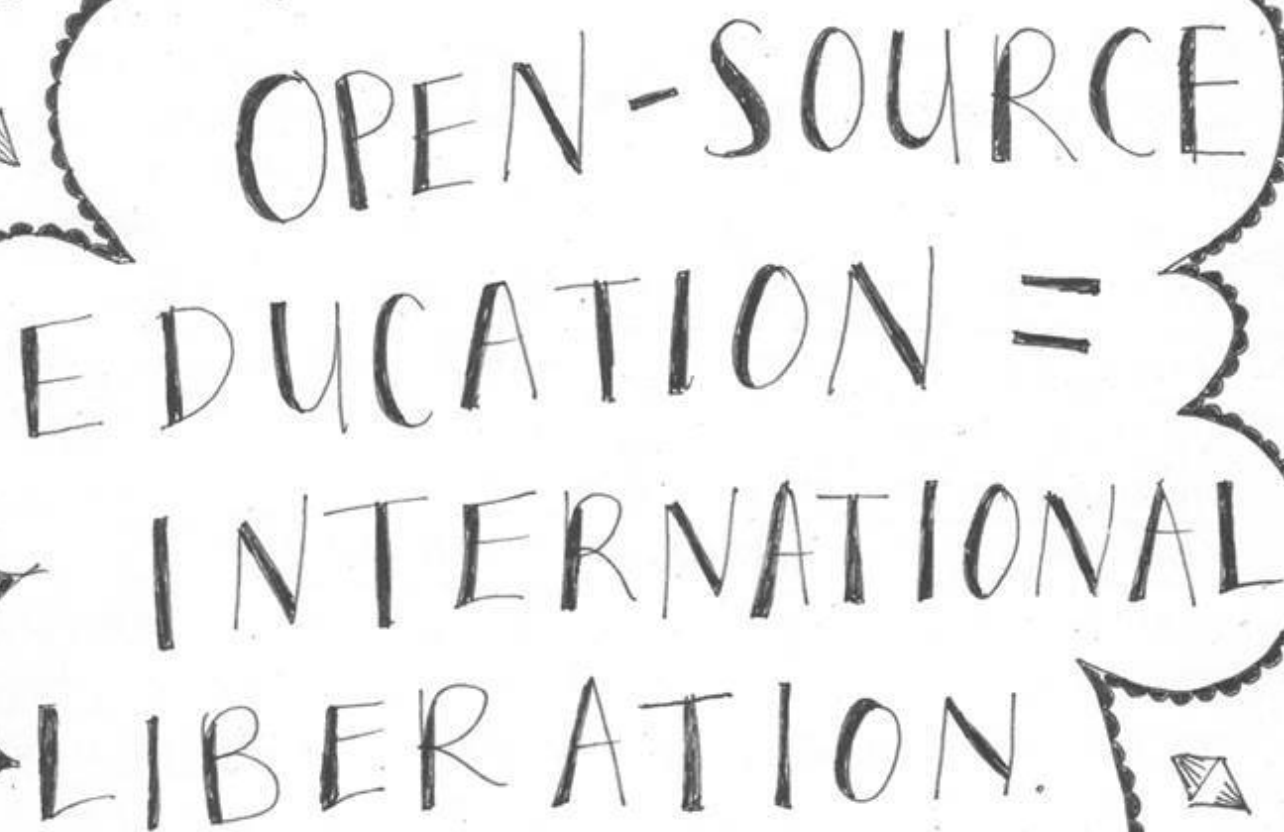 OPEN-SOURCE
EDUCATION =
INTERNATIONAL
LIBERATION.